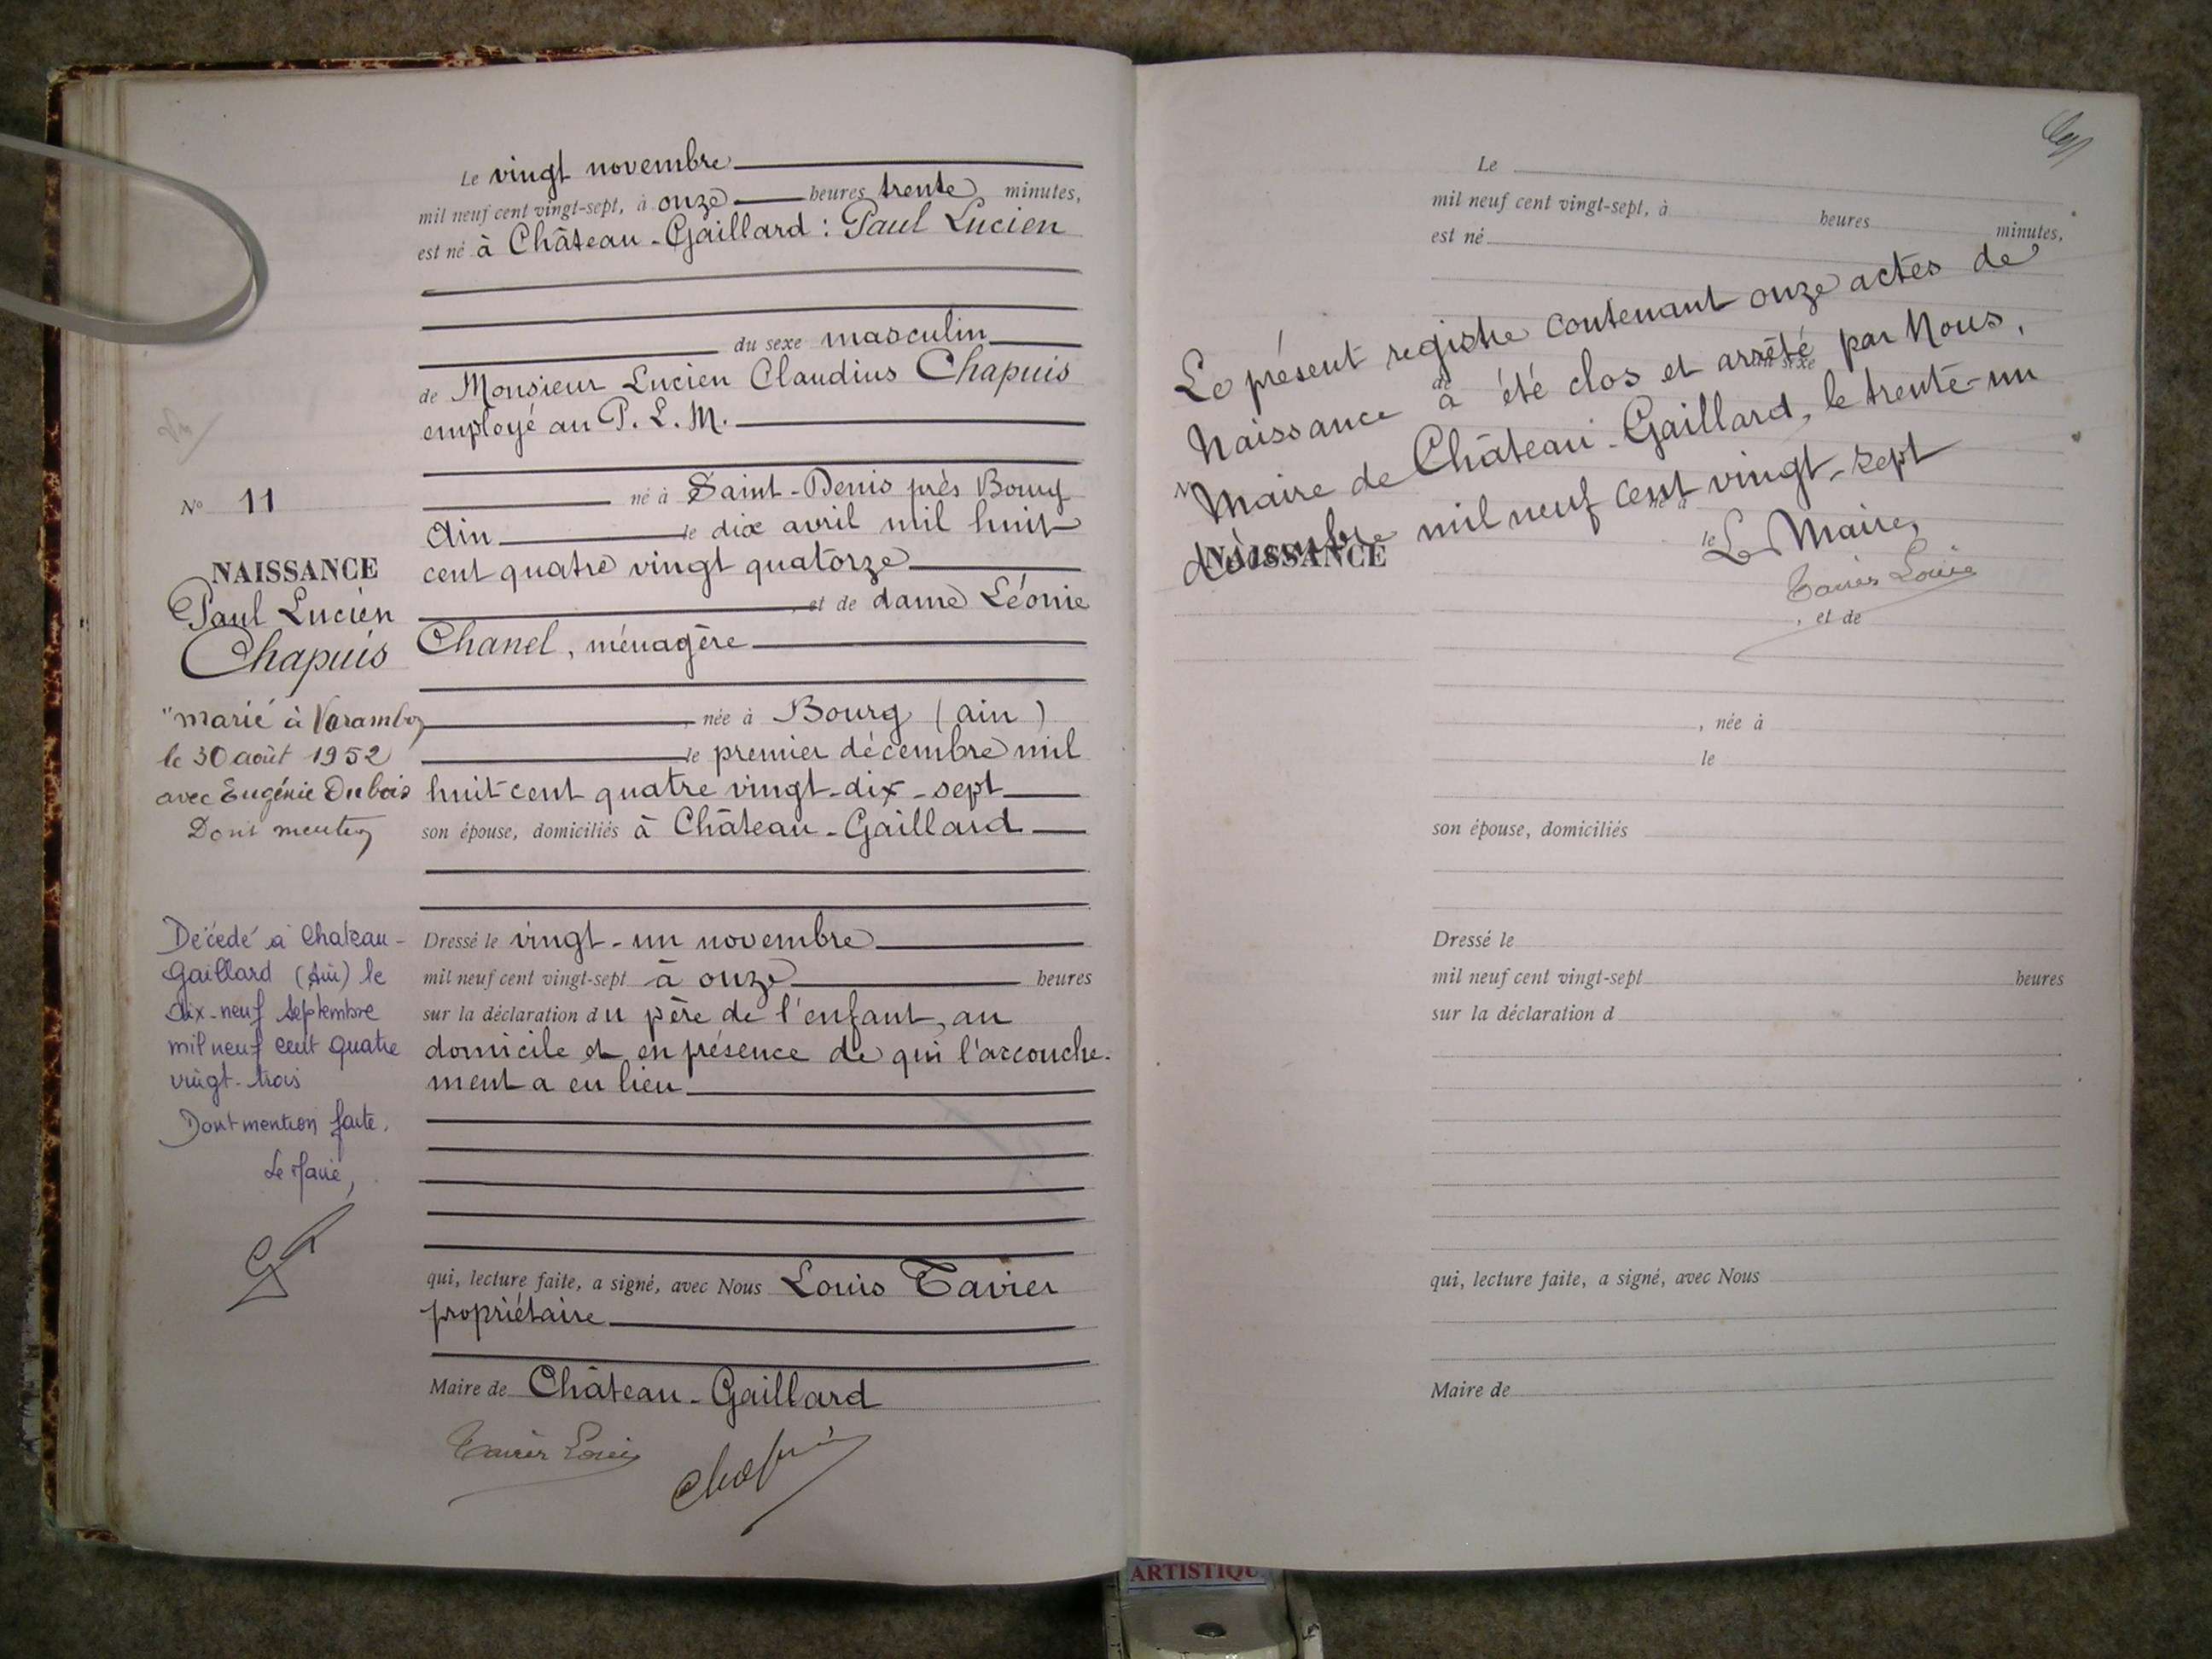 Le vingt novembre
mil neuf cent vingt-sept, à onze heures trente minutes,
est né à Château-Gaillard : Paul Lucien
du sexe masculin
de Monsieur Lucien Claudius Chapuis
employé au P. L. M.
né à Saint-Denis près Bourg
Ain le dix avril mil huit
cent quatre vingt quatorze
, et de dame Léonie
Chanel, ménagère
, née à Bourg (ain)
le premier décembre mil
huit cent quatre vingt-dix-sept
son épouse, domiciliés à Château-Gaillard
Dressé le vingt-un novembre
mil neuf cent vingt-sept à onze heures
sur la déclaration du père de l'enfant, au
domicile et en présence de qui l'accouche-
ment a eu lieu
qui, lecture faite, a signé, avec Nous Louis Tavier
propriétaire
Maire de Château-Gaillard
Tavier Louis
Chapuis
N° 11
NAISSANCE
Paul Lucien
Chapuis
"marié à Varambon
le 30 août 1952
avec Eugénie Dubois
Dont mention
Décédé à Chateau-
Gaillard (Ain) le
dix-neuf Septembre
mil neuf cent quatre
vingt-trois
Dont mention faite.
Le Maire,
Le
mil neuf cent vingt-sept, à heures minutes,
est né
Le présent registre contenant onze actes de
Naissance a été clos et arrêté par Nous,
Maire de Château-Gaillard, le trente-un
décembre mil neuf cent vingt-sept
Le Maire,
Tavier Louis
du sexe
de
né à
le
NAISSANCE
, et de
, née à
le
son épouse, domiciliés
Dressé le
mil neuf cent vingt-sept heures
sur la déclaration d
qui, lecture faite, a signé, avec Nous
Maire de
ARTISTIQU